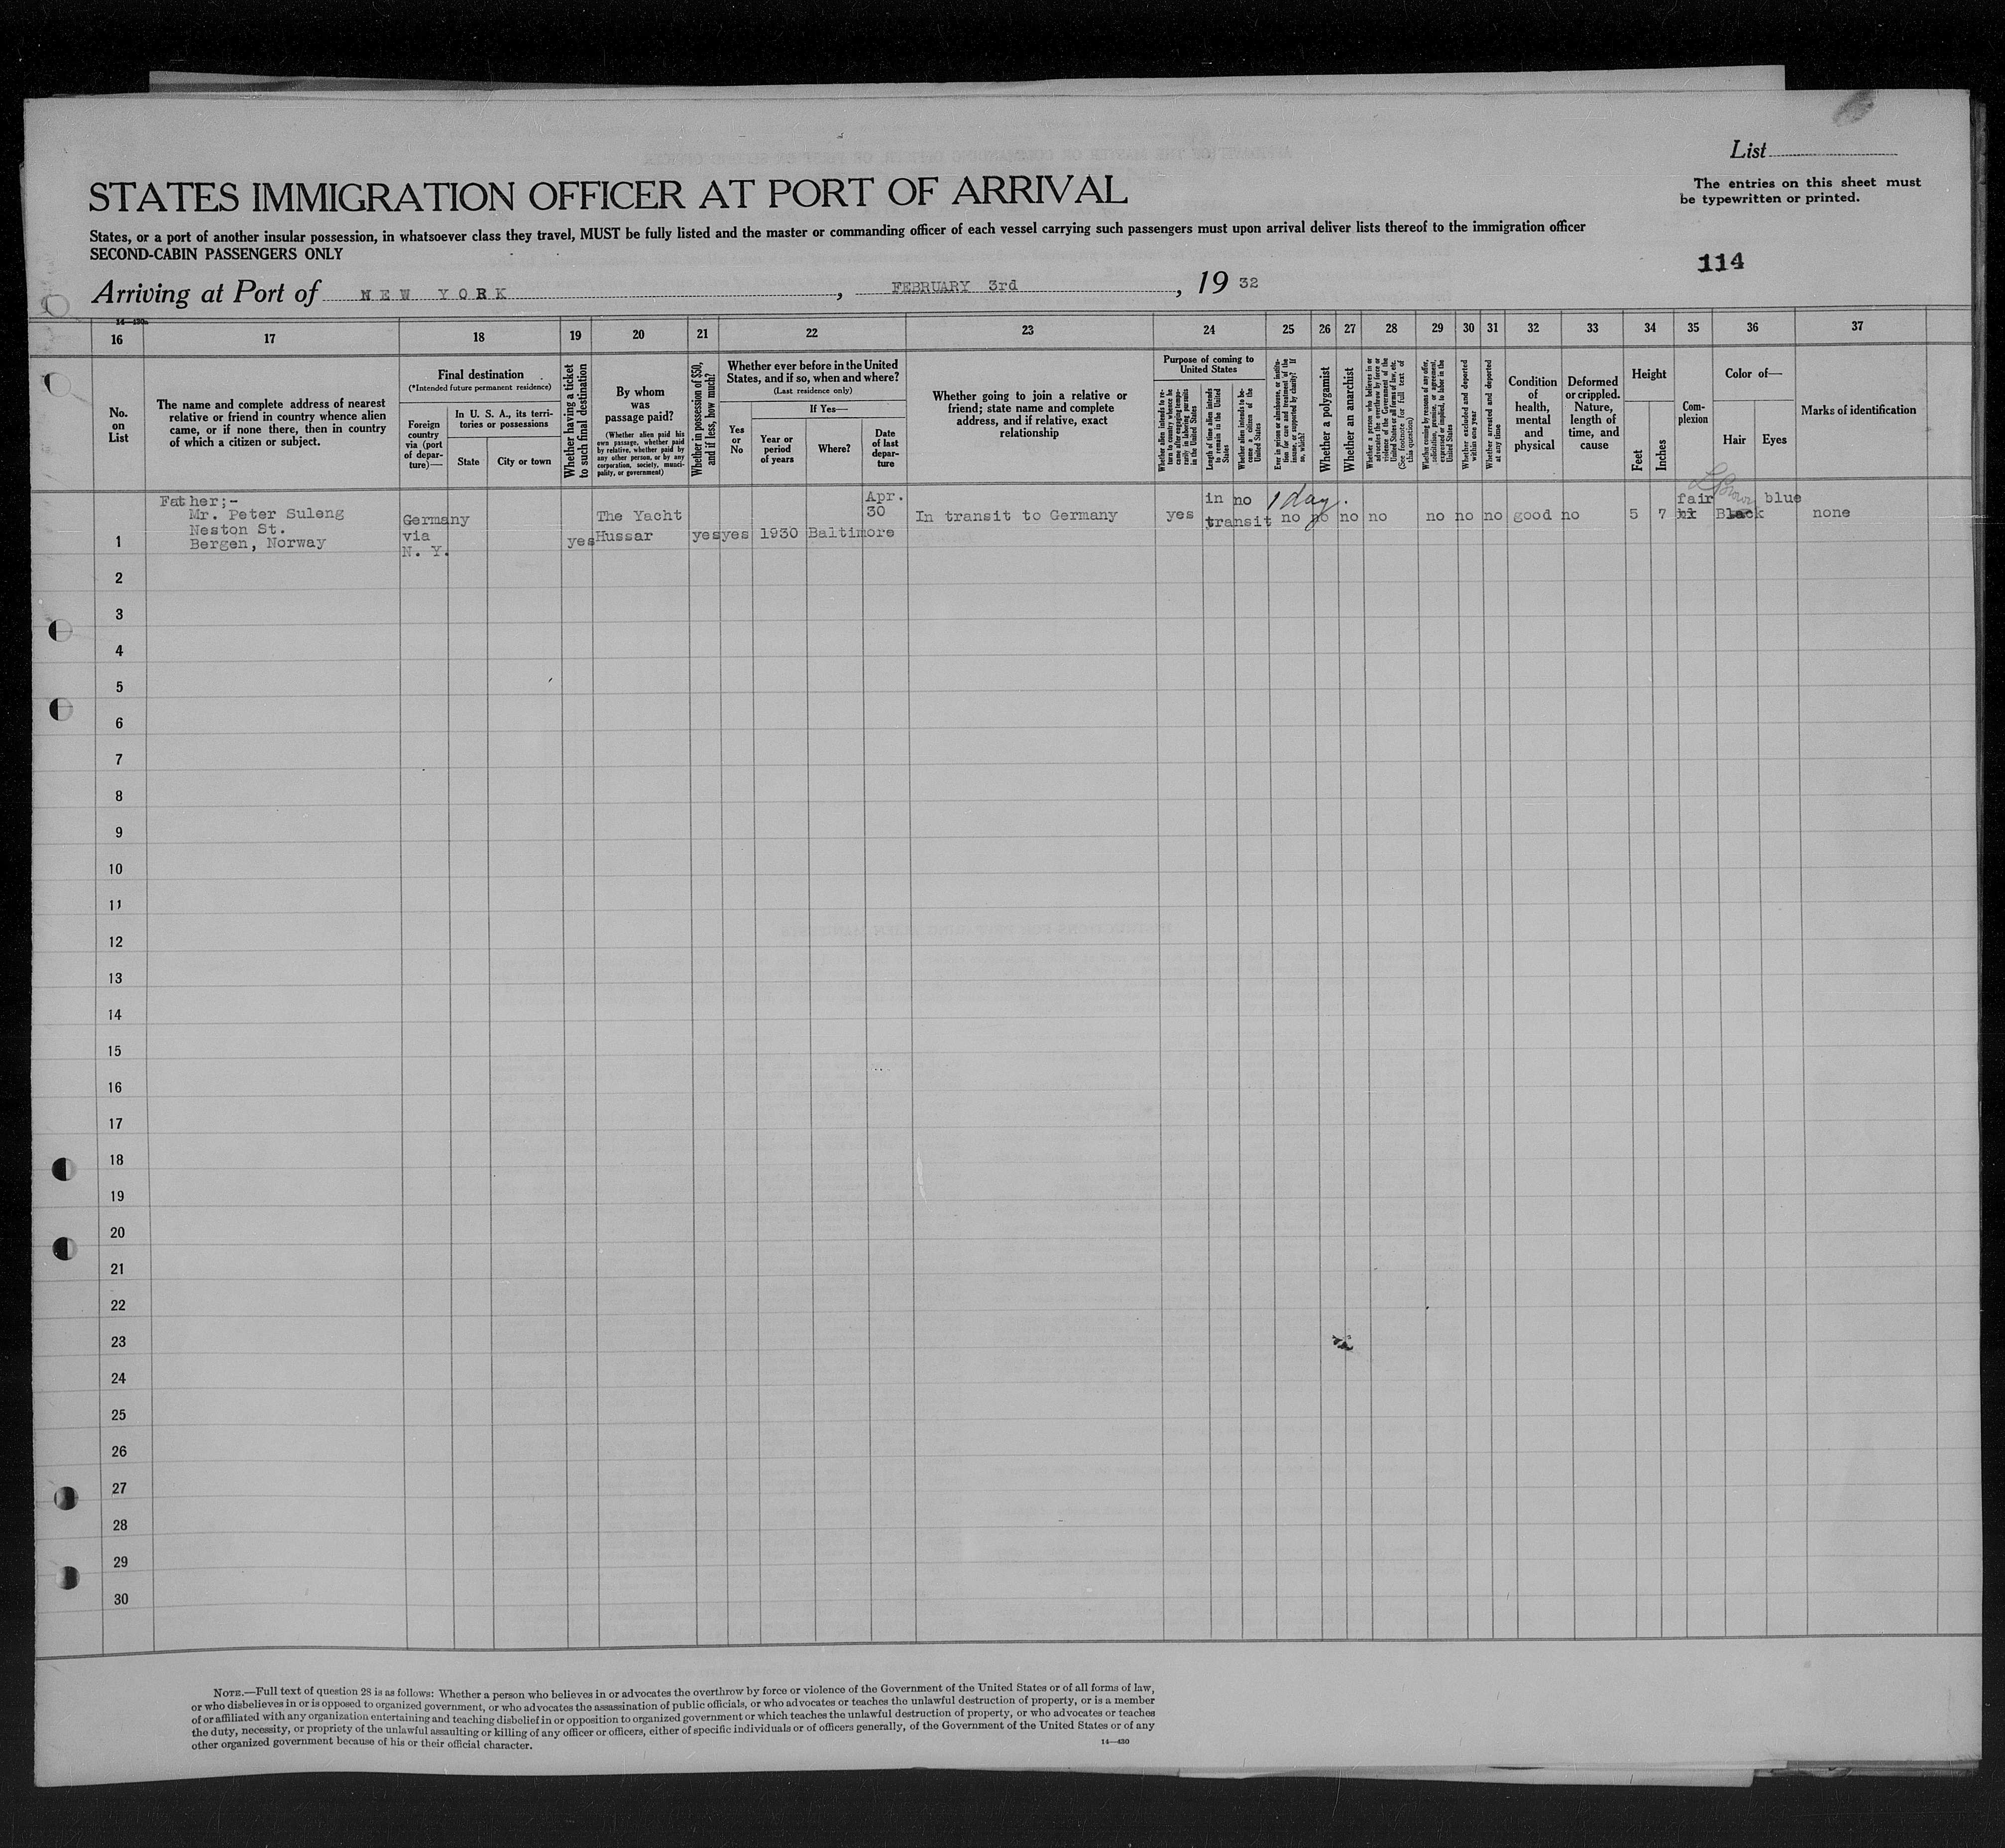 List
The entries on this sheet must
be typewritten or printed.
STATES IMMIGRATION OFFICER AT PORT OF ARRIVAL
States, or a port of another insular possession, in whatsoever class they travel, MUST be fully listed and the master or commanding officer of each vessel carrying such passengers must upon arrival deliver lists thereof to the immigration officer
SECOND-CABIN PASSENGERS ONLY
114
Arriving at Port of NEW YORK, FEBRUARY 3rd, 19 32
16 17 18 19 20 21 22 23 24 25 26 27 28 29 30 31 32 33 34 35 36 37
No.
on
List
The name and complete address of nearest
relative or friend in country whence alien
came, or if none there, then in country
of which a citizen or subject.
Final destination
(*Intended future permanent residence)
Foreign
country
via (port
of depar-
ture)—
In U. S. A., its terri-
tories or possessions
State
City or town
Whether having a ticket
to such final destination
By whom
was
passage paid?
(Whether alien paid his
own passage, whether paid
by relative, whether paid by
any other person, or by any
corporation, society, munici-
pality, or government)
Whether in possession of $50,
and if less, how much?
Whether ever before in the United
States, and if so, when and where?
(Last residence only)
Yes
or
No
If Yes—
Year or
period
of years
Where?
Date
of last
depar-
ture
Whether going to join a relative or
friend; state name and complete
address, and if relative, exact
relationship
Purpose of coming to
United States
Whether alien intends to re-
turn to country whence he
came after engaging tempo-
rarily in laboring pursuits
in the United States
Length of time alien intends
to remain in the United
States
Whether alien intends to be-
come a citizen of the
United States
Ever in prison or almshouse, or institu-
tion for care and treatment of the
insane, or supported by charity? If
so, which?
Whether a polygamist
Whether an anarchist
Whether a person who believes in or
advocates the overthrow by force or
violence of the Government of the
United States or all forms of law, etc.
(See footnote for full text of
this question)
Whether coming by reasons of any offer,
solicitation, promise, or agreement,
expressed or implied, to labor in the
United States
Whether excluded and deported
within one year
Whether arrested and deported
at any time
Condition
of
health,
mental
and
physical
Deformed
or crippled.
Nature,
length of
time, and
cause
Height
Feet
Inches
Com-
plexion
Color of—
Hair
Eyes
Marks of identification
1
Father;-
Mr. Peter Suleng
Neston St.
Bergen, Norway
Germany
via
N. Y.
yes
The Yacht
Hussar
yes
yes
1930
Baltimore
Apr.
30
In transit to Germany
yes
in
transit
no
1 day.
no
no
no
no
no
no
no
good
no
5
7
fair
Brown
Black
blue
none
2
3
4
5
6
7
8
9
10
11
12
13
14
15
16
17
18
19
20
21
22
23
24
25
26
27
28
29
30
NOTE.—Full text of question 28 is as follows: Whether a person who believes in or advocates the overthrow by force or violence of the Government of the United States or of all forms of law,
or who disbelieves in or is opposed to organized government, or who advocates the assassination of public officials, or who advocates or teaches the unlawful destruction of property, or is a member
of or affiliated with any organization entertaining and teaching disbelief in or opposition to organized government or which teaches the unlawful destruction of property, or who advocates or teaches
the duty, necessity, or propriety of the unlawful assaulting or killing of any officer or officers, either of specific individuals or of officers generally, of the Government of the United States or of any
other organized government because of his or their official character.
14—430